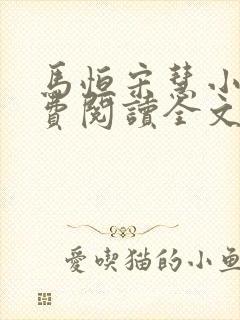 馬恒宋慧小
費閱讀全文
愛喫猫的小魚